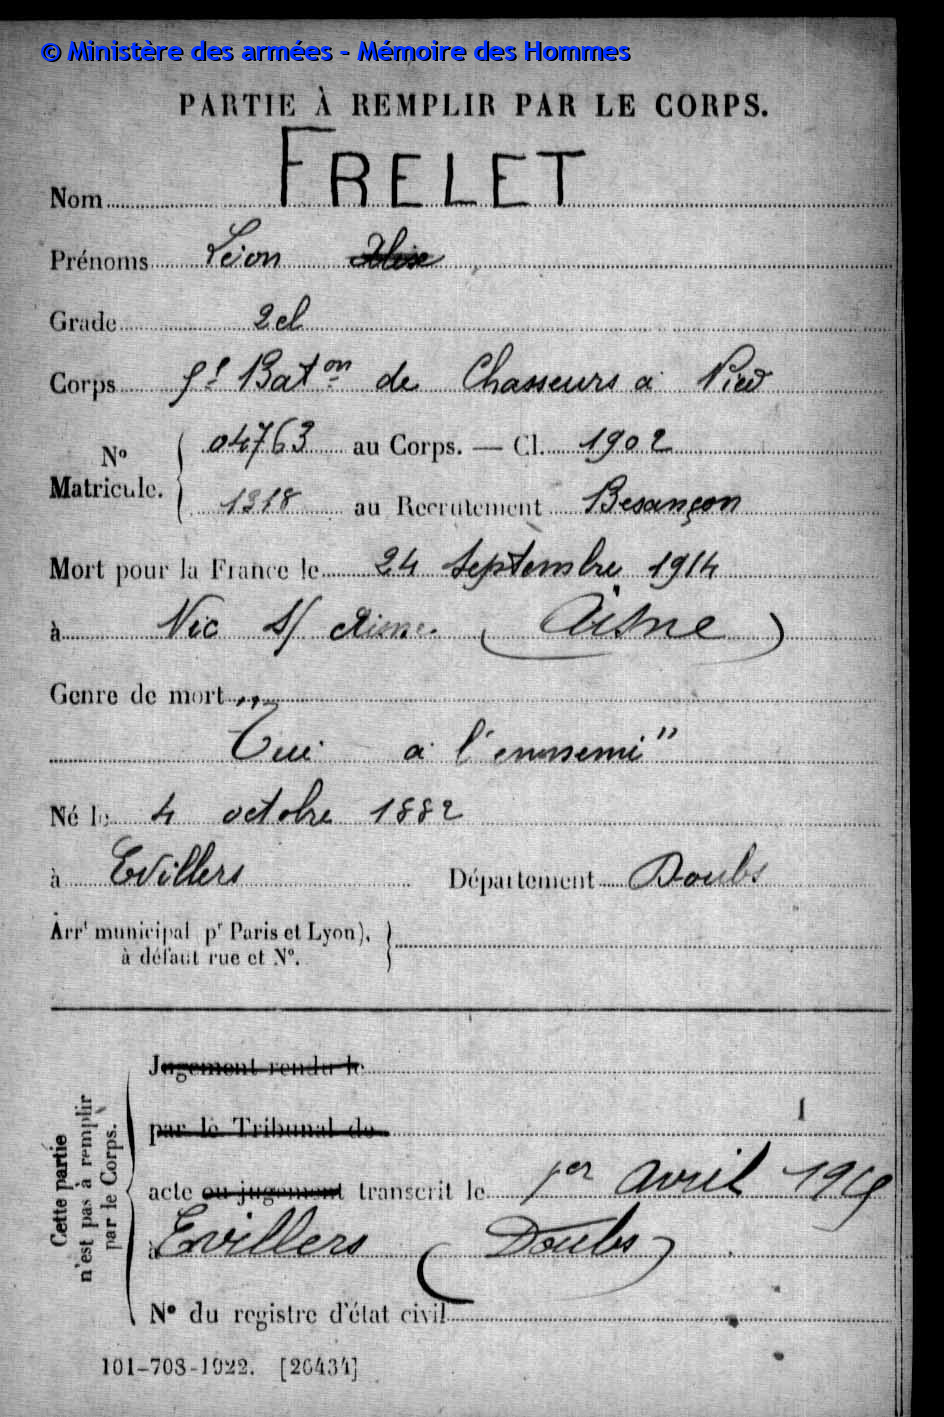 © Ministère des armées - Mémoire des Hommes
PARTIE À REMPLIR PAR LE CORPS.
Nom FRELET
Prénoms Léon
Grade 2 cl
Corps 5e Baton de Chasseurs à Pied
No Matricule. 04763 au Corps. — Cl. 1902
1318 au Recrutement Besançon
Mort pour la France le 24 Septembre 1914
à Vic S/ Aisne (Aisne)
Genre de mort
"Tué à l'ennemi"
Né le 4 octobre 1882
à Evillers Département Doubs
Arrt municipal pr Paris et Lyon),
à défaut rue et No.
Jugement rendu le
par le Tribunal de
acte ou jugement transcrit le 1er avril 1919
à Evillers (Doubs)
No du registre d'état civil
Cette partie
n'est pas à remplir
par le Corps.
101-708-1922. [26434]